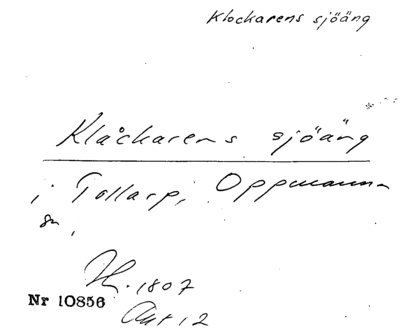 Klockarens sjöäng
Klåckarens sjöäng
i Tollarp, Oppmanna
sn,
H. 1807
Nr 10856
Akt 12